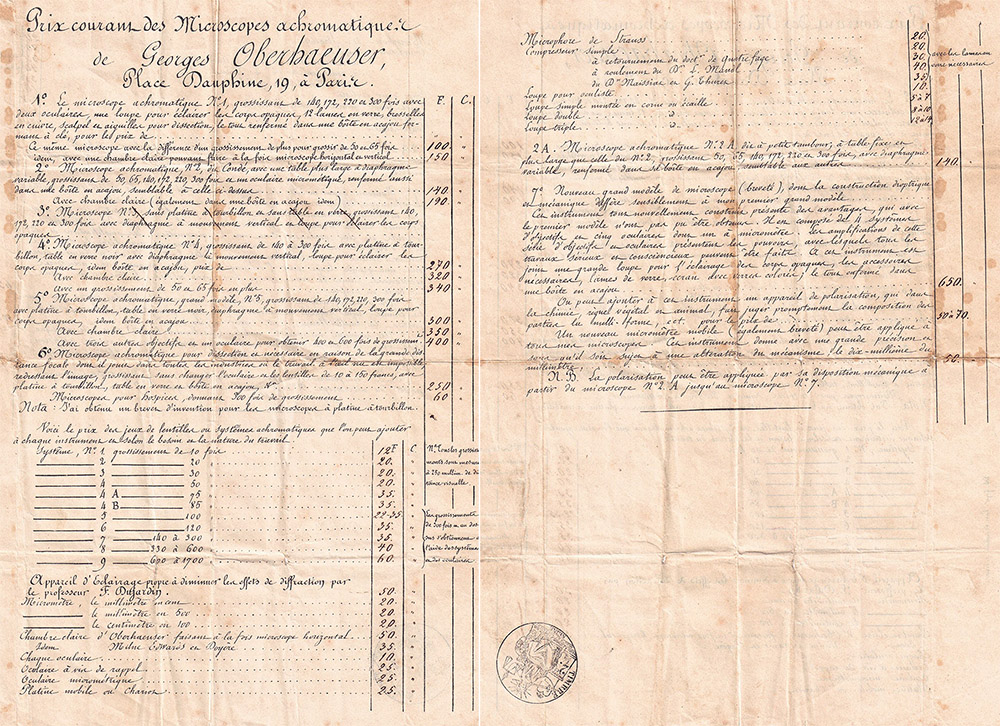 Prix courant des Microscopes achromatiques
de Georges Oberhaeuser,
Place Dauphine, 19, à Paris.
F. C.
1º. Le microscope achromatique Nº 1, grossissant de 140, 172, 220 et 300 fois avec
deux oculaires, une loupe pour éclairer les corps opaques, 12 lames en verre, brucelles
en cuivre, scalpel et aiguilles pour dissection, le tout renfermé dans une boîte en acajou fer-
mant à clé, pour les prix de 100. "
Ce même microscope avec la différence d'un grossissement de plus pour grossir de 50 à 65 fois
idem, avec une chambre claire pouvant faire à la fois microscope horizontal et vertical 150 "
2º. Microscope achromatique, Nº 2, du Coude, avec une table plus large à diaphragme
variable, grossissant de 50, 65, 140, 172, 220, 300 fois et un oculaire micrométrique, renfermé aussi
dans une boîte en acajou, semblable à celle ci-dessus 140. "
Avec chambre claire (également dans une boîte en acajou idem) 190. "
3º. Microscope Nº 3, sans platine à tourbillon et sans table en verre, grossissant 140,
172, 220 et 300 fois avec diaphragme à mouvement vertical et loupe pour éclairer les corps
opaques
4º. Microscope achromatique Nº 4, grossissant de 140 à 300 fois, avec platine à tour-
billon, table en verre noir avec diaphragme à mouvement vertical, loupe pour éclairer les
corps opaques, idem boîte en acajou, prix de 270 "
Avec chambre claire 320 "
Avec un grossissement de 50 et 65 fois en plus 340 "
5º. Microscope achromatique, grand modèle, Nº 5, grossissant de 140, 172, 220, 300 fois
avec platine à tourbillon, table en verre noir, diaphragme à mouvement vertical, loupe pour
corps opaques, idem boîte en acajou 300 "
Avec chambre claire 350 "
Avec trois autres objectifs et un oculaire pour obtenir 400 et 600 fois de grossissem. 400 "
6º. Microscope achromatique pour dissection et nécessaire en raison de la grande dis-
tance focale dont il jouit dans toutes les
redressant l'image, grossissant sans changer l'oculaire et les lentilles de 10 à 150 fois, avec
platine à tourbillon, table en verre et boîte en acajou, Nº 250. "
Microscopes pour hospices, donnant 300 fois de grossissement 60 "
Nota : J'ai obtenu un brevet d'invention pour les microscopes à platine à tourbillon.
Voici le prix des jeux de lentilles ou systèmes achromatiques que l'on peut ajouter
à chaque instrument et selon le besoin et la nature du travail.
Système, Nº 1 grossissement de 10 fois 12 F C
2 20 20. "
3 30 20. "
4 50 20. "
4 A 75 35. "
4 B 85 35. "
5 100 22-35. "
6 120 35. "
7 140 à 300 35. "
8 330 à 600 40 "
9 600 à 1700 60. "
Nª. Tous les grossisse-
ments sont mesurés
à 250 millim. de dis-
tance visuelle
Les grossissements
de 300 fois et au des-
sus s'obtiennent à
l'aide des systèmes
et des oculaires
Appareil d'Eclairage propre à diminuer les effets de diffraction par
le professeur F. Dujardin 50. "
Micromètre, le millimètre en cent 20. "
le millimètre en 500 20. "
le centimètre en 100 20. "
Chambre claire d'Oberhaeuser faisant à la fois microscope horizontal 50. "
Idem Milne Edwards et Doyère 35. "
Chaque oculaire 10. "
Oculaire à vis de rappel 25. "
Oculaire micrométrique 25. "
Platine mobile ou chariot 25. "
Microphore de Strauss 20. "
Compresseur simple 20. "
à retournement du doctr. de Quatrefage 30. "
à roulement du Dr. L. Mandl 40. "
du Dr. Maissiac et G. Thuret 35. "
Loupe pour oculiste 10. "
Loupe simple montée en corne ou écaille 5 à 7
Loupe double " 8 à 10
Loupe triple " 12 à 14
avec les lames en
verre nécessaires
2 A. Microscope achromatique Nº 2 A dit à petit tambour, à table fixe et
plus large que celle du Nº 2, grossissant 50, 65, 140, 172, 220 et 300 fois, avec diaphragme
variable, renfermé dans sa boîte en acajou, semblable aux autres 140. "
7º. Nouveau grand modèle de microscope (breveté), dont la construction dioptrique
et mécanique diffère sensiblement à mon premier grand modèle.
Cet instrument tout nouvellement construit présente des avantages, qui avec
le premier modèle n'ont pas pu être obtenus. Il est composé de 4 Systèmes
d'objectifs et cinq oculaires dont un à micromètre : les amplifications de cette
série d'objectifs et oculaires présentent les pouvoirs, avec lesquels tous les
travaux sérieux et consciencieux peuvent être faits. A cet instrument est
joint une grande loupe pour l'éclairage des corps opaques, les accessoires
nécessaires, lames de verre, écran avec verres colorés, le tout enfermé dans
une boîte en acajou 650. "
On peut ajouter à cet instrument un appareil de polarisation, qui dans
la chimie, règnes végétal et animal, fait juger promptement la composition des
parties la multi-forme, ect. pour le prix de 50 à 70. "
Un nouveau micromètre mobile (également breveté) peut être appliqué à
tous mes microscopes. Cet instrument donne avec une grande précision et
sans qu'il soit sujet à une altération du mécanisme, le dix-millième du
millimètre 50. "
N.B. La polarisation peut être appliquée par sa disposition mécanique à
partir du microscope Nº 2 A jusqu'au microscope Nº 7.